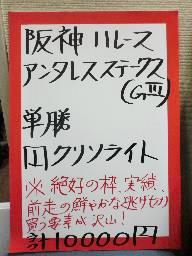 阪神11レース
アンタレスステークス
(GⅢ)
単勝
1クリソライト
※絶好の枠、実績、
前走の鮮やかな逃げ切り
買う要素が沢山!
計10000円